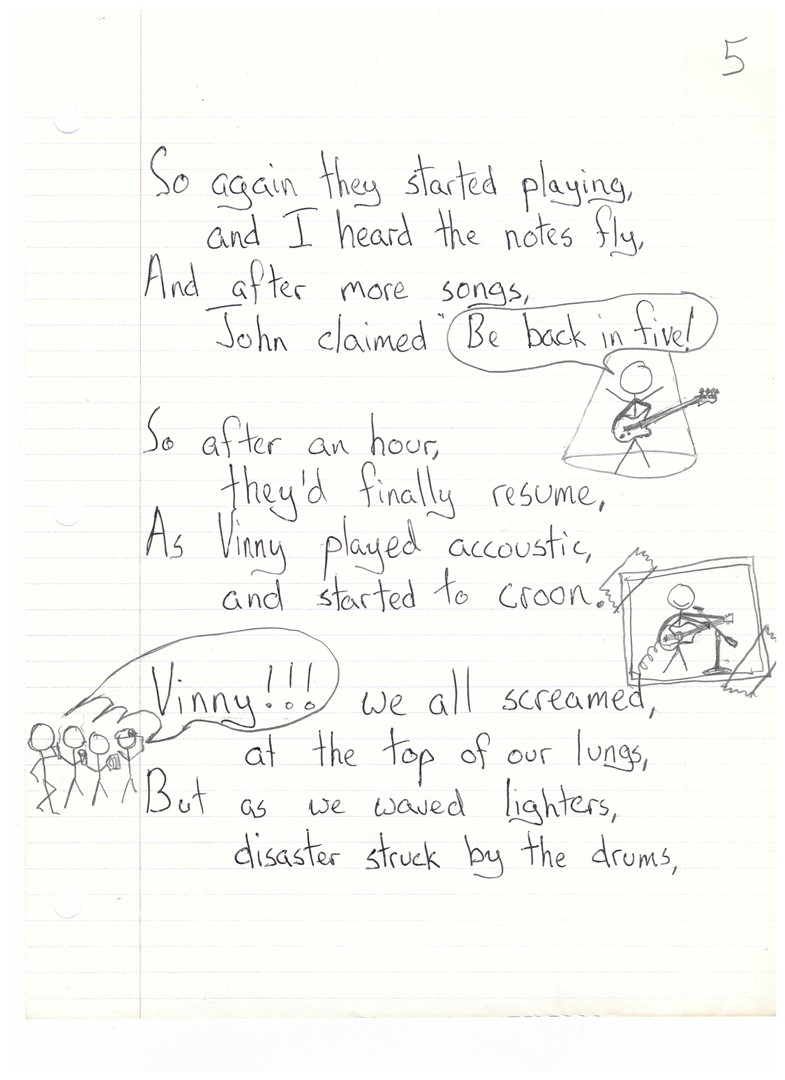 5
So again they started playing,
and I heard the notes fly,
And after more songs,
John claimed "Be back in five!
So after an hour,
they'd finally resume,
As Vinny played accoustic,
and started to croon.
Vinny!!! we all screamed,
at the top of our lungs,
But as we waved lighters,
disaster struck by the drums,